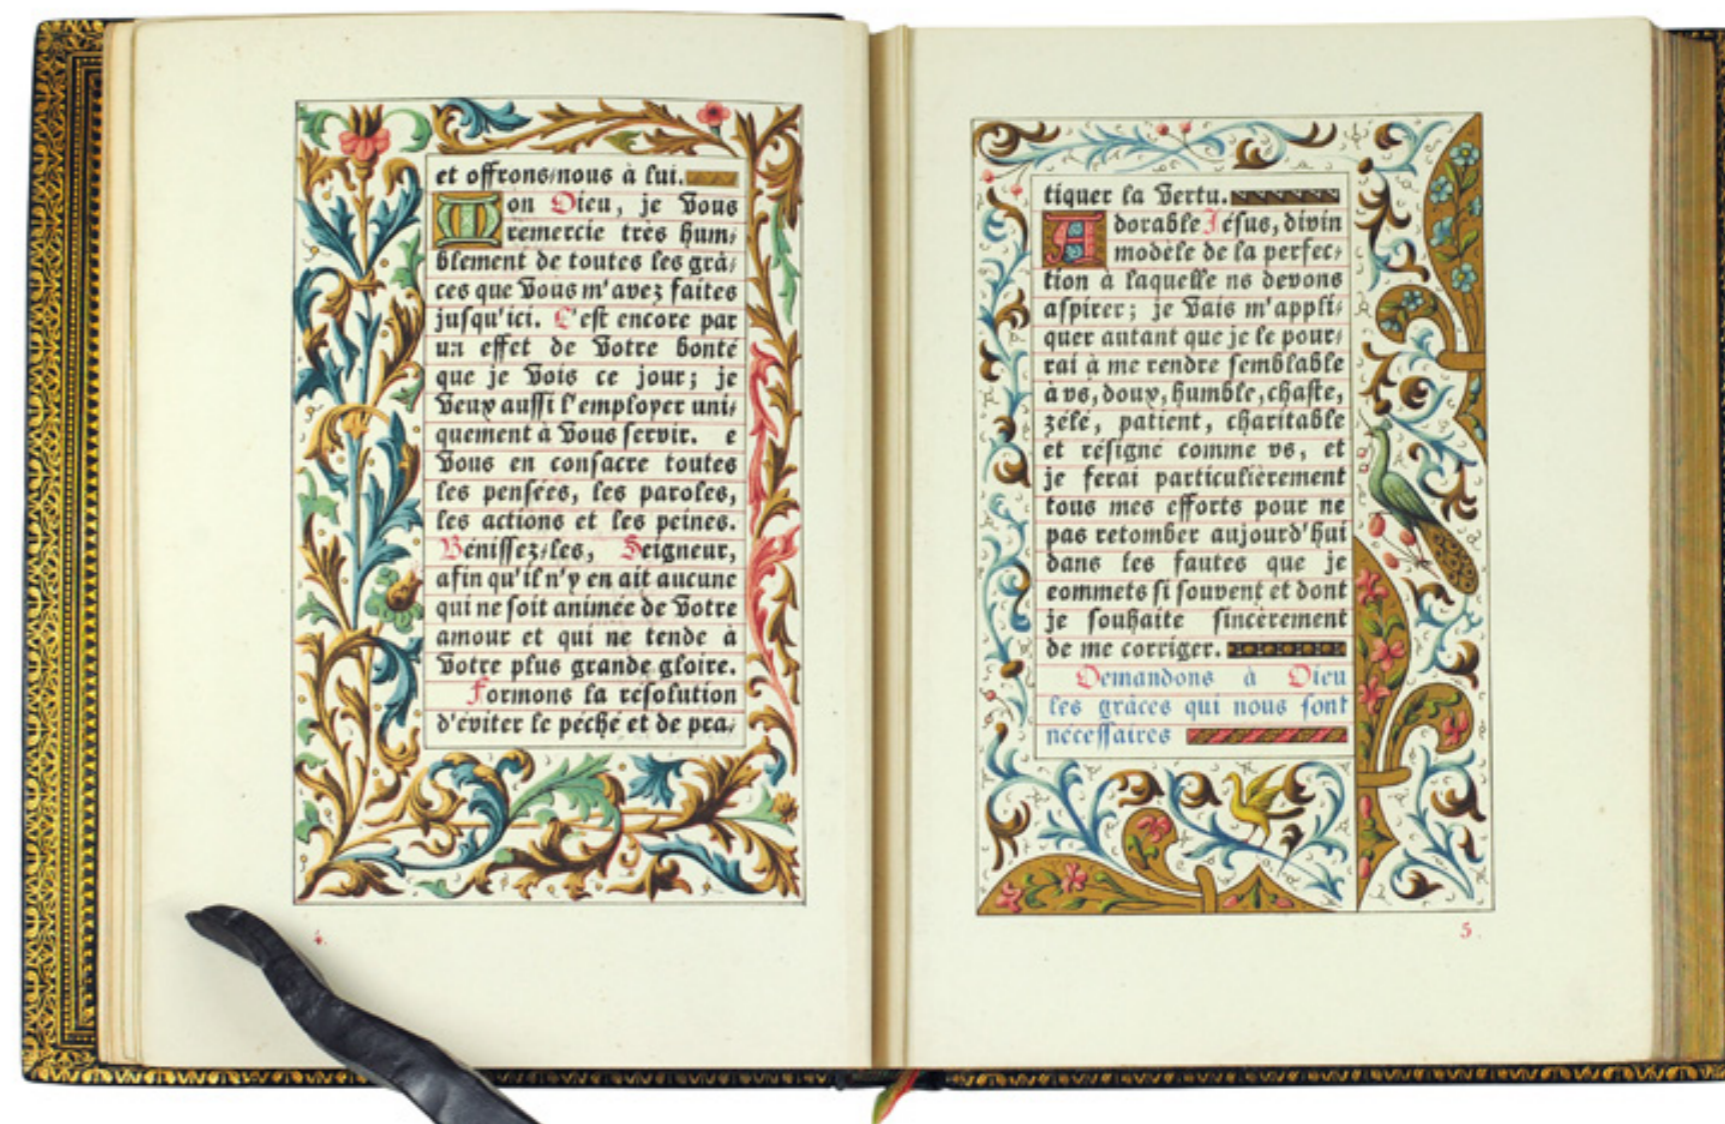 et offrons-nous à lui.
Mon Dieu, je Vous
remercie très hum-
blement de toutes les grâ-
ces que Vous m'avez faites
jusqu'ici. C'est encore par
un effet de Votre bonté
que je Vois ce jour; je
Veux aussi l'employer uni-
quement à Vous servir. e
Vous en consacre toutes
les pensées, les paroles,
les actions et les peines.
Bénissez-les, Seigneur,
afin qu'il n'y en ait aucune
qui ne soit animée de Votre
amour et qui ne tende à
Votre plus grande gloire.
Formons la résolution
d'éviter le péché et de pra-
4.
tiquer la Vertu.
Adorable Jésus, divin
modèle de la perfec-
tion à laquelle ns devons
aspirer; je Vais m'appli-
quer autant que je le pour-
rai à me rendre semblable
à vs, doux, humble, chaste,
zélé, patient, charitable
et résigné comme vs, et
je ferai particulièrement
tous mes efforts pour ne
pas retomber aujourd'hui
dans les fautes que je
commets si souvent et dont
je souhaite sincèrement
de me corriger.
Demandons à Dieu
les grâces qui nous sont
nécessaires
5.